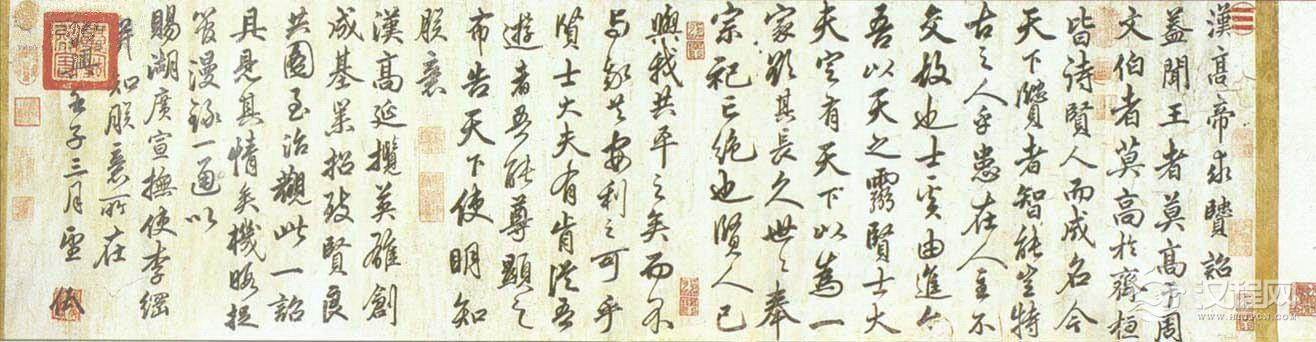 漢高帝求賢詔
蓋聞王者莫高周
文伯者莫高於齊桓
皆待賢人而成名今
天下賢者智能豈特
古之人乎患在人主不
交故也士奚由進今
吾以天之靈賢士大
夫定有天下以為一
家欲其長久世〻奉
宗祀亡絕也賢人已
與我共平之矣而不
与我共安利之可乎
賢士大夫有肯從吾
遊者吾能尊顯之
布告天下使明知
朕意
漢高延攬英雄創
成基業招致賢良
共圖至治觀此一詔
具見其情矣機暇捉
管漫錄一通以
賜湖廣宣撫使李綱
俾知朕意所在
壬子三月望
汉程网
HTTPCN.COM